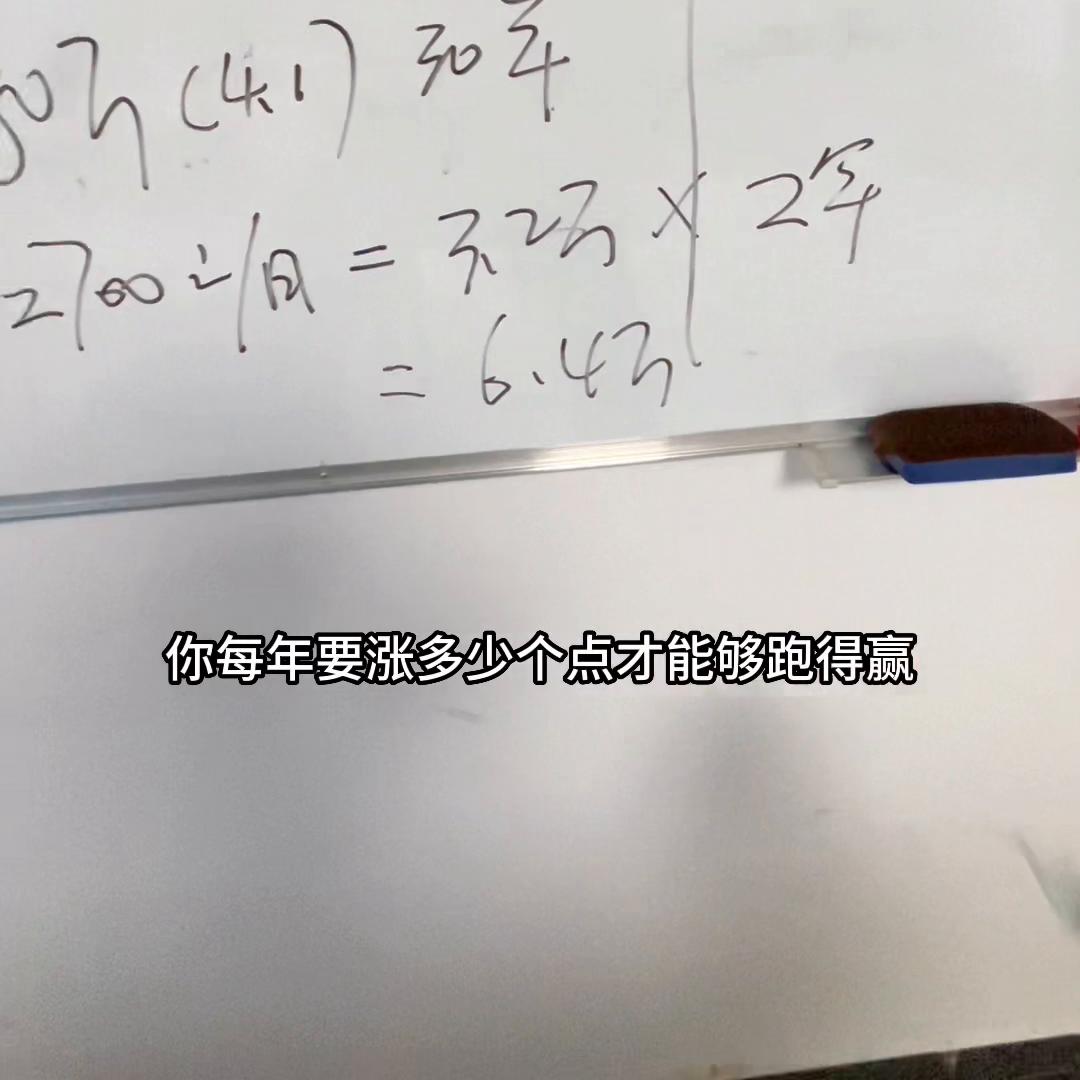 50万(4.1) 30年
2700元/月 = 3.2万 × 2年
= 6.4万
你每年要涨多少个点才能够跑得赢